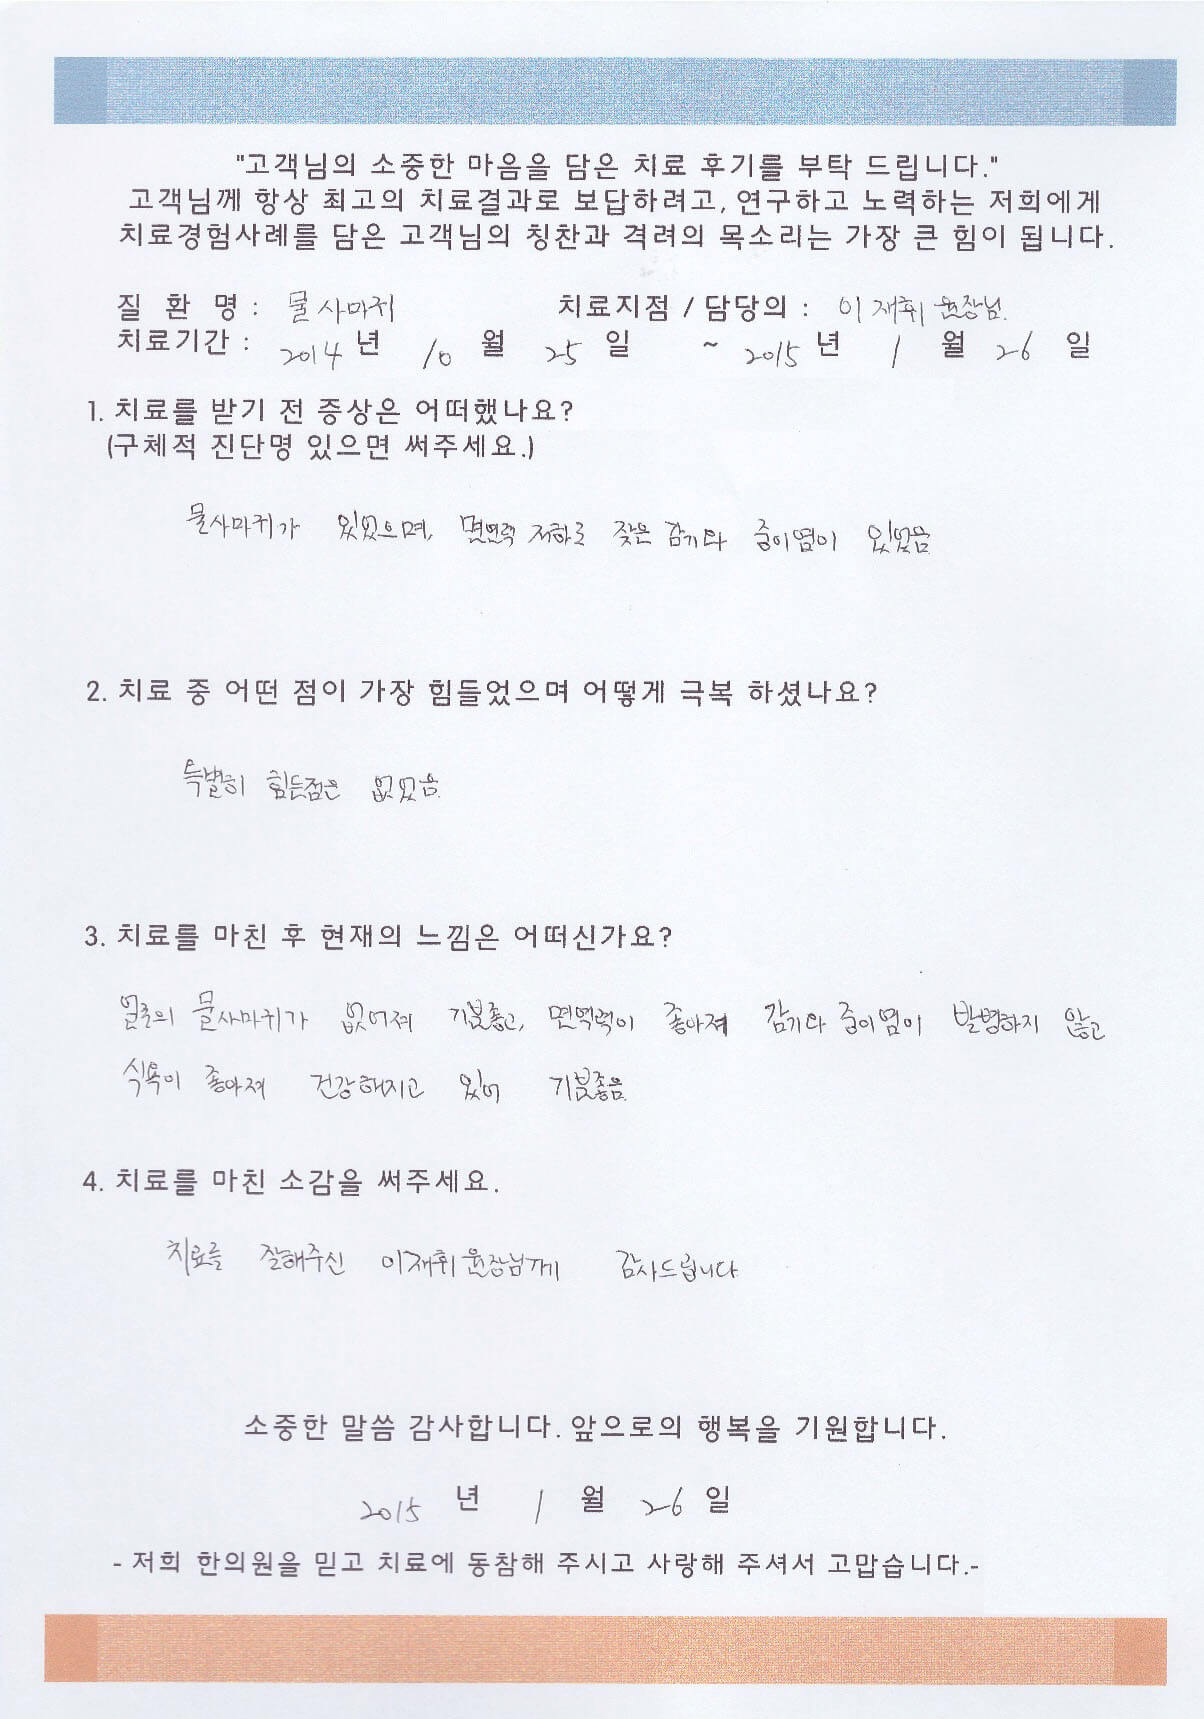 "고객님의 소중한 마음을 담은 치료 후기를 부탁 드립니다."
고객님께 항상 최고의 치료결과로 보답하려고, 연구하고 노력하는 저희에게
치료경험사례를 담은 고객님의 칭찬과 격려의 목소리는 가장 큰 힘이 됩니다.
질 환 명 : 물사마귀 치료지점 / 담당의 : 이재휘 원장님.
치료기간 : 2014 년 10 월 25 일 ~ 2015 년 1 월 26 일
1. 치료를 받기 전 증상은 어떠했나요?
(구체적 진단명 있으면 써주세요.)
물사마귀가 있었으며, 면연력 저하로 잦은 감기와 중이염이 있었음
2. 치료 중 어떤 점이 가장 힘들었으며 어떻게 극복 하셨나요?
특별히 힘든점은 없었음.
3. 치료를 마친 후 현재의 느낌은 어떠신가요?
얼굴의 물사마귀가 없어져 기분좋고, 면역력이 좋아져 감기와 중이염이 발병하지 않고
식욕이 좋아져 건강해지고 있어 기분좋음.
4. 치료를 마친 소감을 써주세요.
치료를 잘해주신 이재휘 원장님께 감사드립니다.
소중한 말씀 감사합니다. 앞으로의 행복을 기원합니다.
2015 년 1 월 26 일
- 저희 한의원을 믿고 치료에 동참해 주시고 사랑해 주셔서 고맙습니다.-